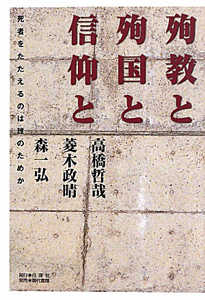 殉教と
殉国と
信仰と
死者をたたえるのは誰のためか
高橋哲哉
菱木政晴
森一弘
発行●白澤社
発売●現代書館